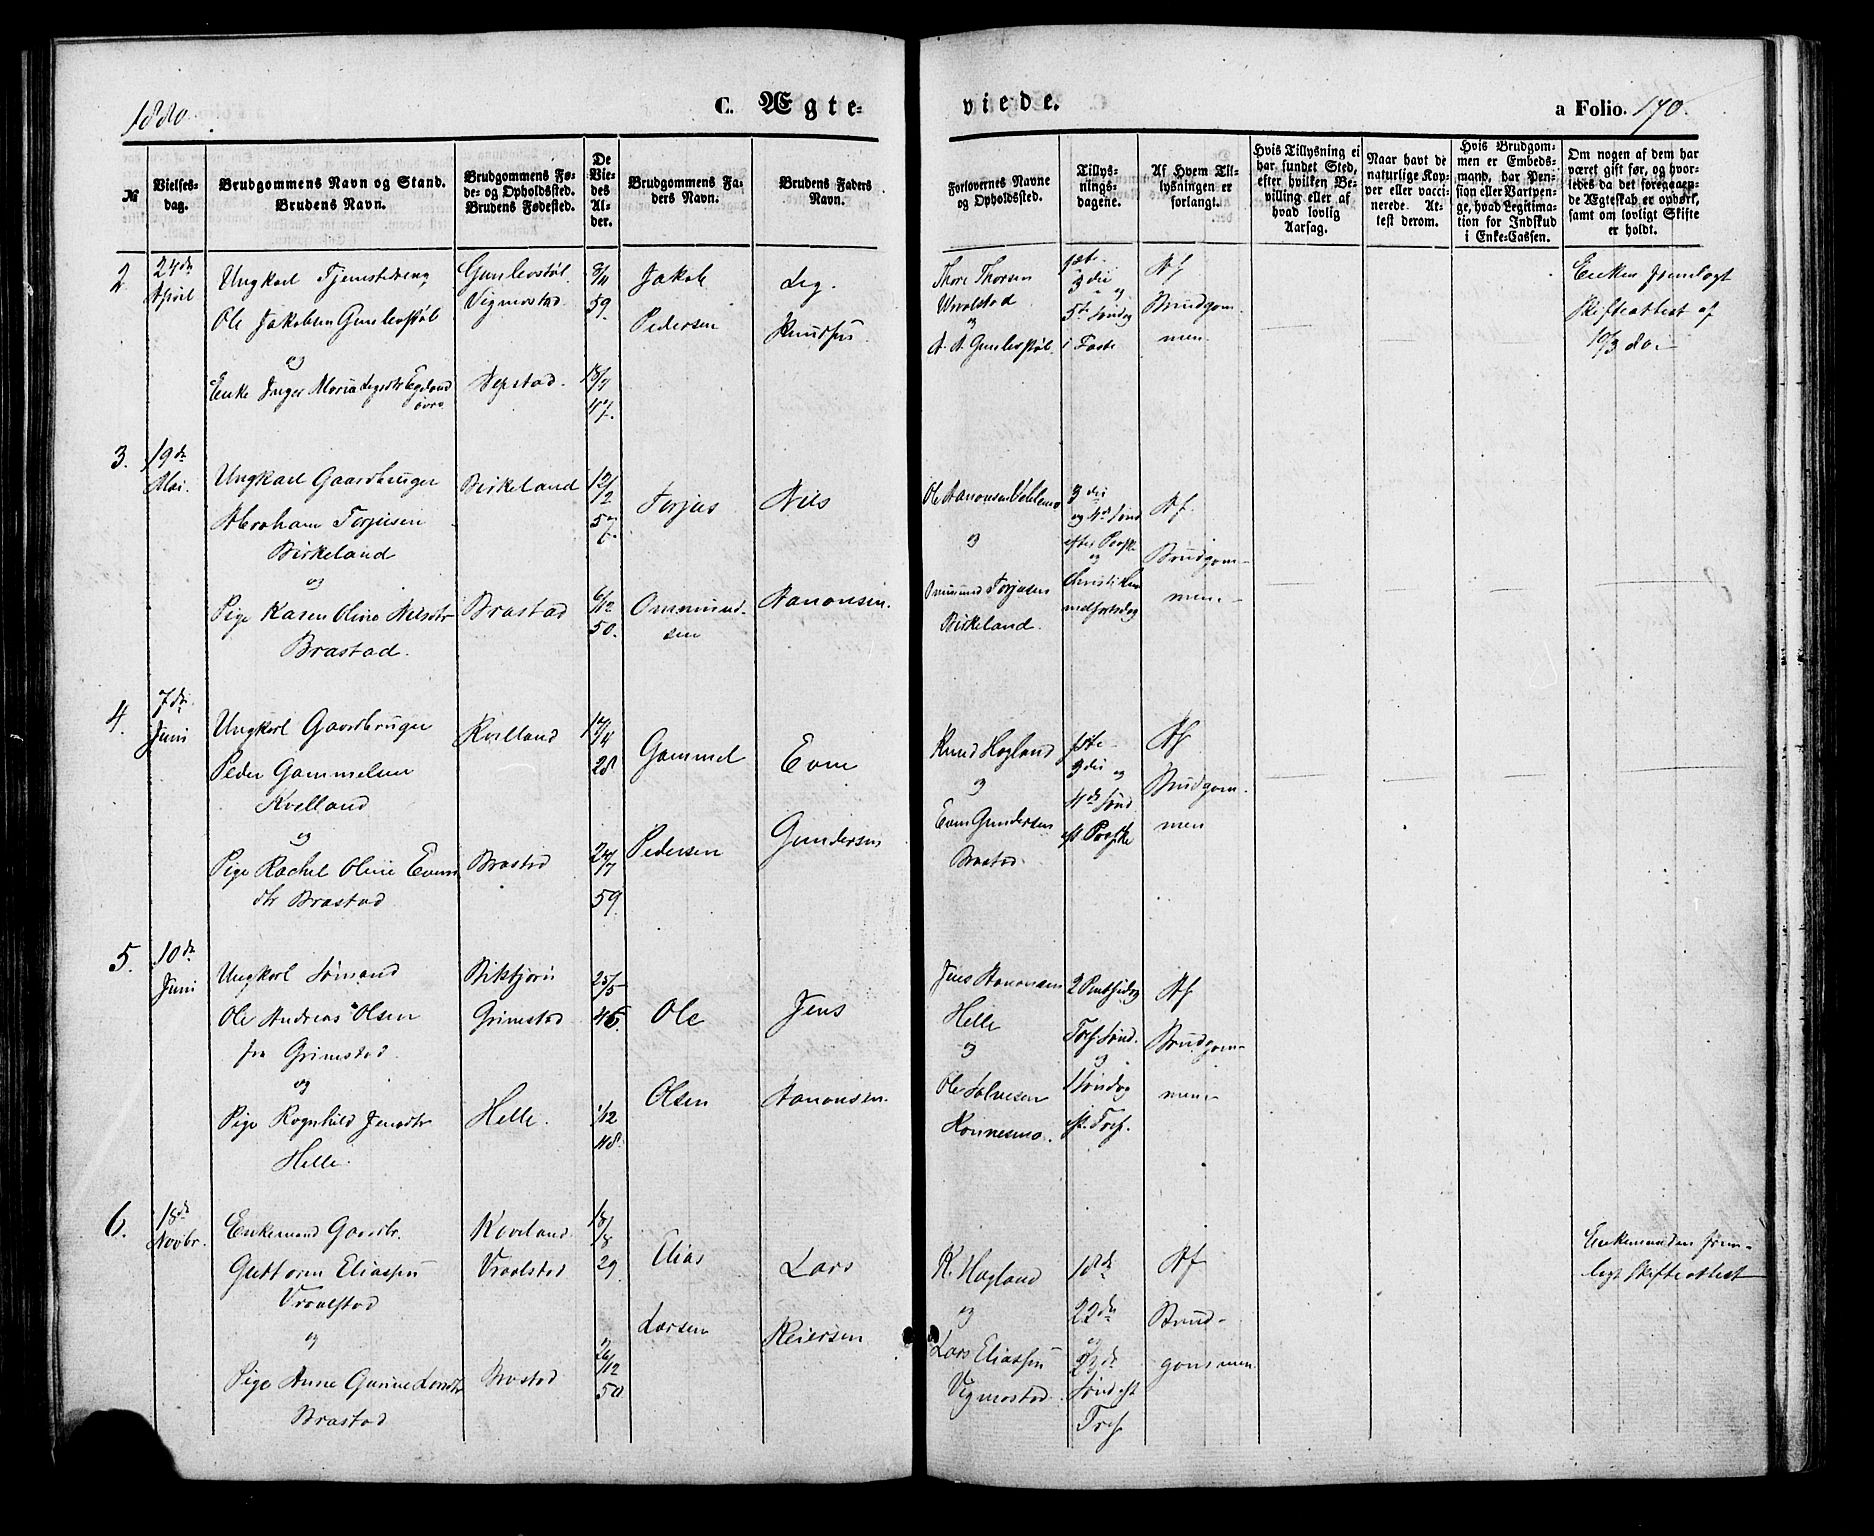 1880.
C. Ægte-
viede.
a Folio. 170.
№
Vielses-
dag.
Brudgommens Navn og Stand.
Brudens Navn.
Brudgommens Fø-
de- og Opholdssted.
Brudens Fødested.
De
Vie-
des
Al-
der.
Brudgommens Fa-
ders Navn.
Brudens Faders
Navn.
Forlovernes Navne
og Opholdssted.
Tillys-
nings-
dagene.
Af Hvem Til-
lysningen er
forlangt.
Hvis Tillysning ei
har fundet Sted,
efter hvilken Be-
villing eller af
hvad lovlig
Aarsag.
Naar havt de
naturlige Kop-
per eller vacci-
nerede. At-
test derom.
Hvis Brudgom-
men er Embeds-
mand, dar Pen-
sion eller Vartpen-
ge, hvad Legitima-
tion for Indskud
i Enke-Cassen.
Om nogen af dem har
været gift før, og hvor-
ledes da det foregaaen-
de Ægteskab er ophørt,
samt om lovligt Skifte
er holdt.
2
24de
April
Ungkarl Tjenestedreng
Ole Jakobsen Gunlevstøl
og
Enke Inger Maria Legdtr Egeland
øvre
Gunlevstøl
Vigmostad
3/11
59.
18/7
47.
Jakob
Pedersen
Leg.
Knudsen
Thore Thorsen
og
A. A. Gunlevstøl
3die
og
5te Søndag
i Faste
Af
Brudgom-
men.
Enken fremlagt
Skifteattest af
10/3 do.
3.
19de
Mai.
Ungkarl Gaardbruger
Abraham Torjusen
Birkeland
og
Pige Karen Oline Nilsdtr
Brastad.
Birkeland
Brastad
12/2
57.
6/12
50.
Torjus
Ommund-
sen
Nils
Aanonsen.
Ole Aanonsen
og
Ommund Torjusen
Birkeland.
3die
og 4de Sønd
efter Paaske
og
Christi Him-
melfartsdag
Af
Brudgom-
men.
4.
7de
Juni
Ungkarl Gaardbruger
Peder Gammelsen
Kvelland
og
Pige Rachel Oline Evens
dtr Brastad
Kvelland
Brastad
17/4
28
24/7
59
Gammel
Pedersen
Even
Gundersen
Knud Hogland
og
Even Gundersen
Brastad.
1ste
3die og
4de Sønd
eft Paaske
Af
Brudgom-
men
5.
10de
Juni
Ungkarl Sømand
Ole Andreas Olsen
fra Grimstad.
og
Pige Ragnhild Jensdtr
Helle.
Grimstad
Helle.
25/5
46.
1/12
48.
Ole
Olsen
Jens
Aanonsen.
Jens Aanonsen
Helle
og
Ole Salvesen
Konnesmo.
2 Pintsedag
Tref. Sønd.
og
1 Søndag
eft. Tref.
Af
Brudgom-
men.
6.
18de
Novbr.
Enkemand Gaardbr.
Guttorm Eliassen
Vraalstad
og
Pige Anne Gurine Larsdtr
Brastad
Vraalstad
Brastad
18/8
29
26/12
50
Elias
Larsen
Lars
Reiersen
K. Hogland
og
Lars Eliassen
Vigmostad.
18de
22de
og
23de
Sønd eft
Tref
Af
Brud-
gommen
Enkemanden frem-
lagt Skifteattest